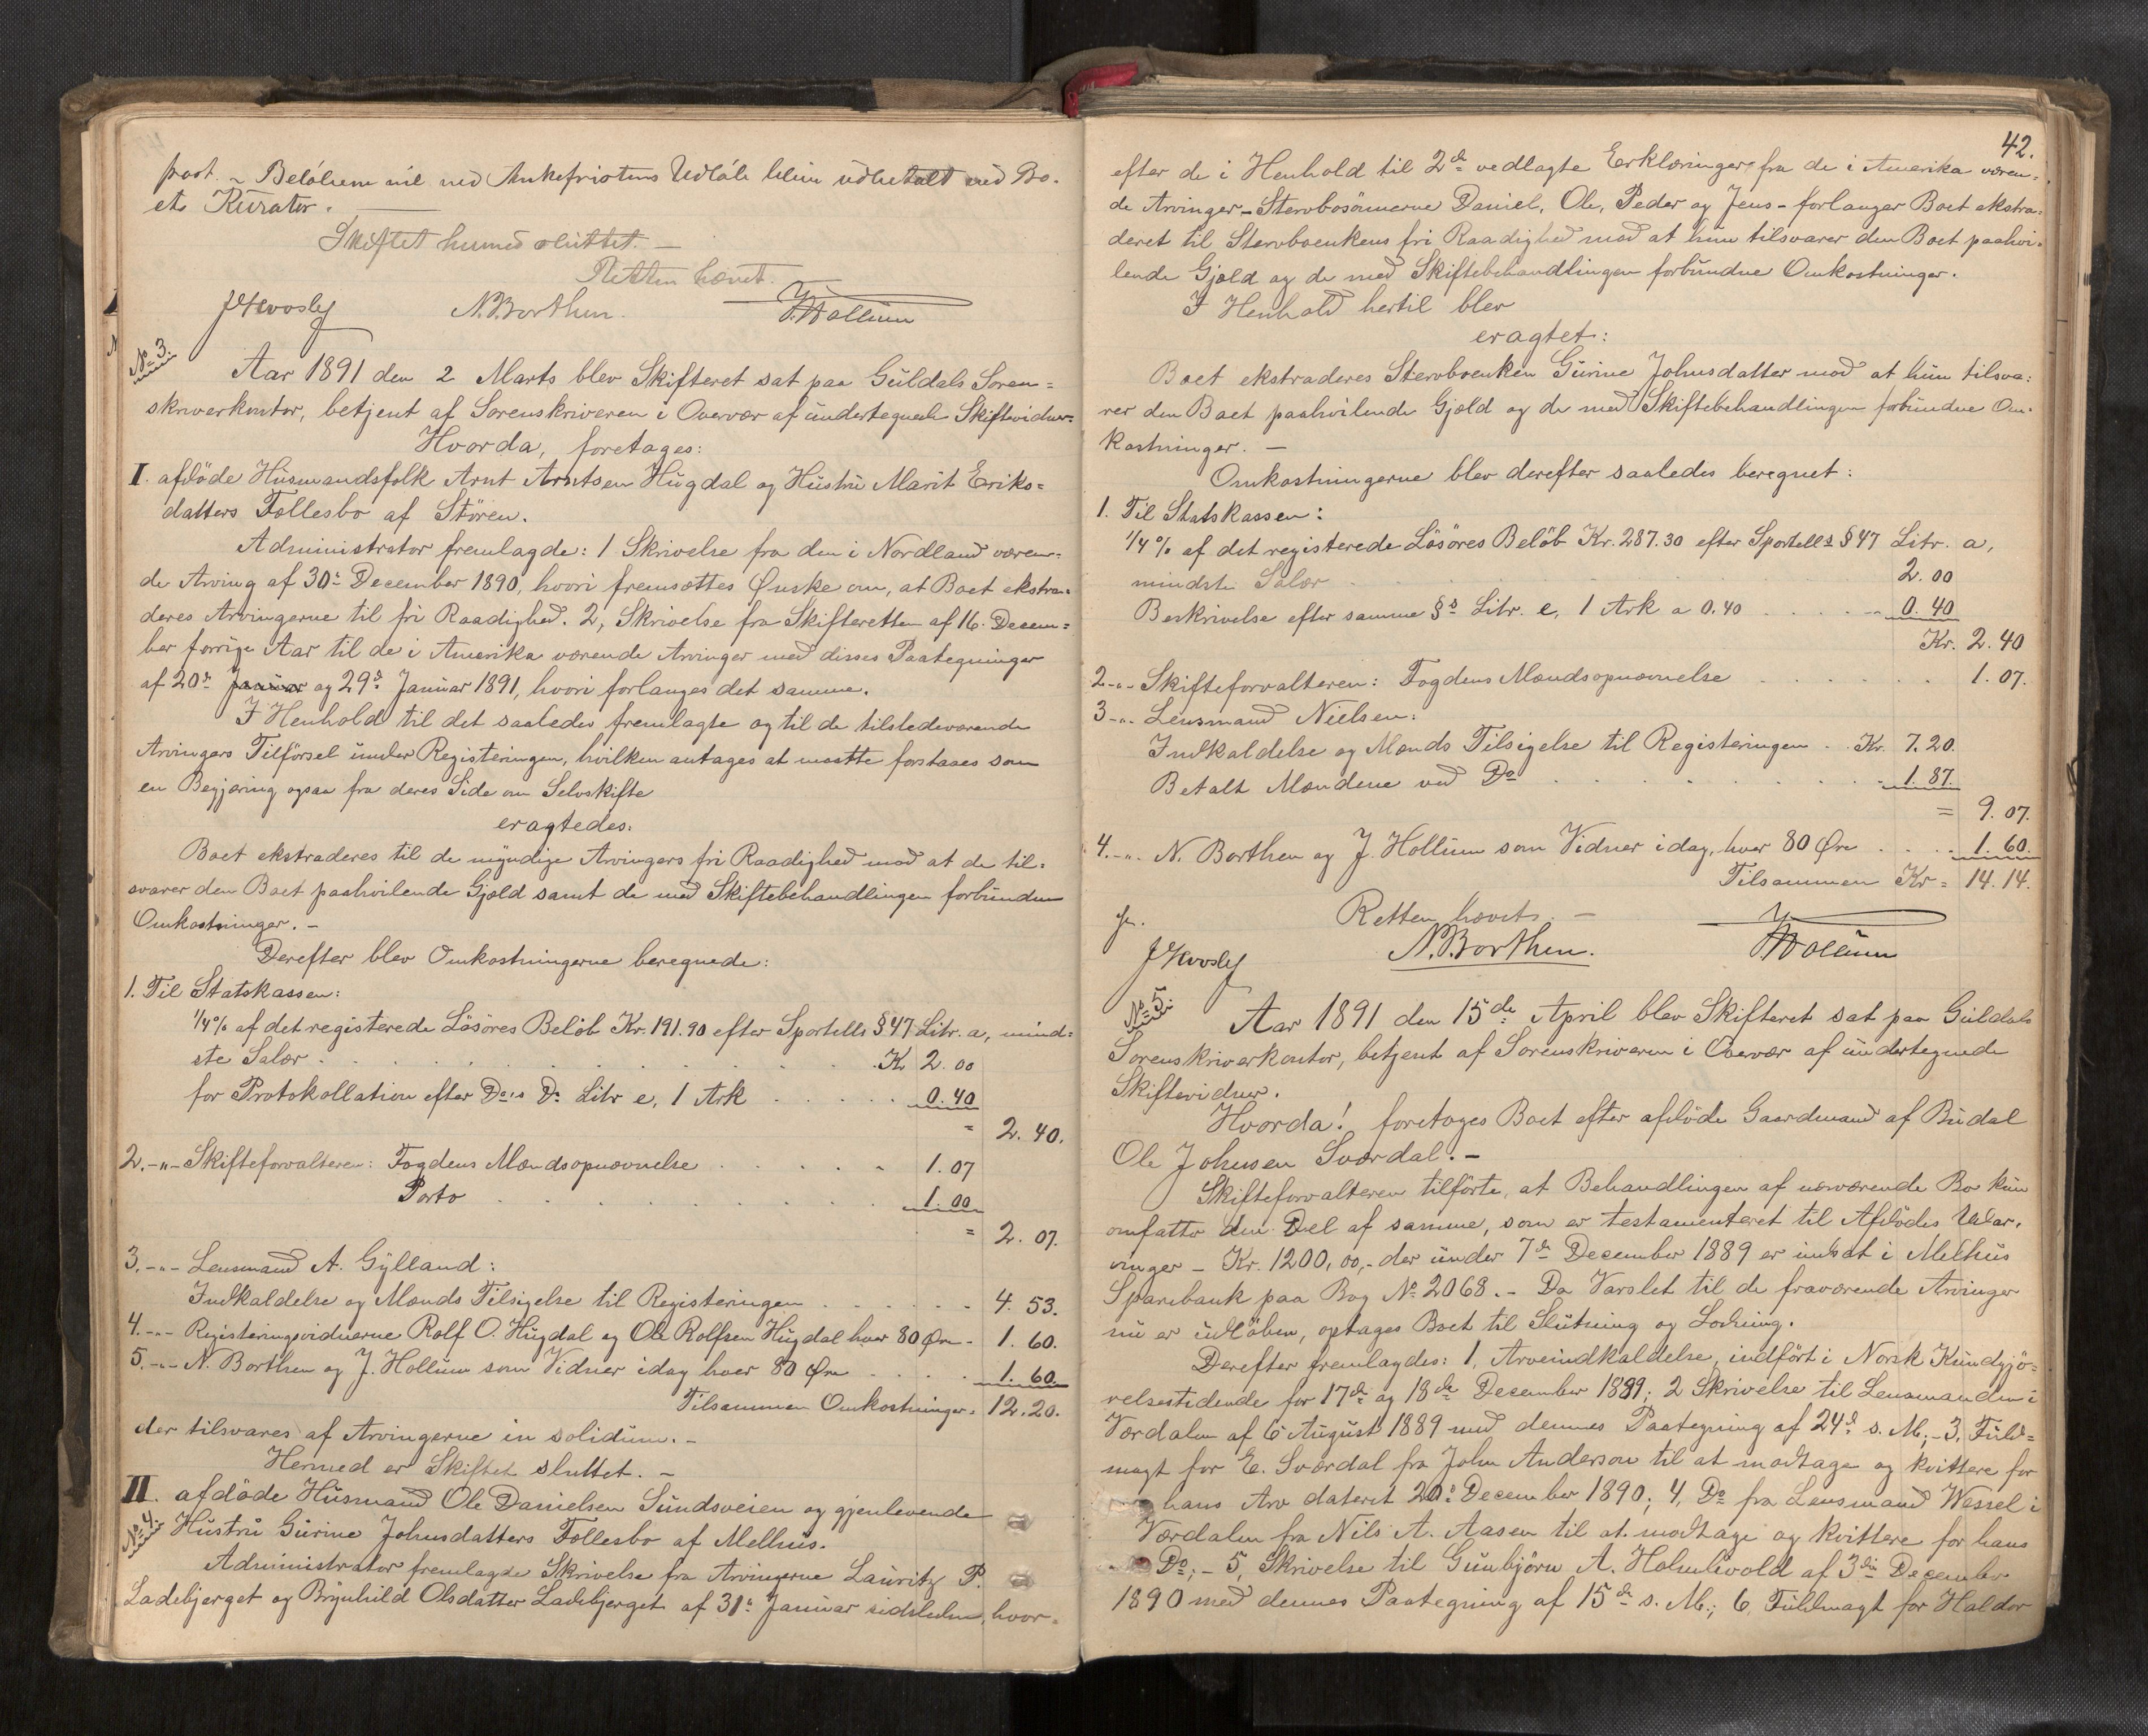 post. ~ Beløbene vil ved Ankefristens Udløb blive udbetalt ved Bo-
ets Kurator. —
Skiftet hermed sluttet. —
Retten hævet.
N. Borthen. J. Hollum
No 3.
Aar 1891 den 2 Marts blev Skifteret sat paa Guldals Soren=
skriverkontor, betjent af Sorenskriveren i Overvær af undertegnede Skiftevidner.
Hvorda, foretages:
I. afdøde Husmandsfolk Arnt Arntsen Hugdal og Hustru Marit Eriks=
datters Fællesbo af Støren.
Administrator fremlagde: 1 Skrivelse fra den i Nordland væren=
de Arving af 30te December 1890, hvori fremsættes Ønske om, at Boet ekstra=
deres Arvingerne til fri Raadighed. 2, Skrivelse fra Skifteretten af 16. Decem=
ber forrige Aar til de i Amerika værende Arvinger med disses Paategninger
af 20de Januar og 29de Januar 1891, hvori forlanges det samme.
I Henhold til det saaledes fremlagte og til de tilstedeværende
Arvingers Tilførsel under Registeringen, hvilken antages at maatte forstaaes som
en Begjæring ogsaa fra deres Side om Selvskifte
eragtedes:
Boet ekstraderes til de myndige Arvingers fri Raadighed mod at de til=
svarer den Boet paahvilende Gjæld samt de med Skiftebehandlingen forbundne
Omkostninger. —
Derefter blev Omkostningerne beregnede:
1. Til Statskassen:
1/4% af det registerede Løsøres Beløb Kr. 191.90 efter Sportells § 47 Litr. a, mind=
ste Salær . . . . Kr 2.00
for Protokollation efter Do's Do Litr e, 1 Ark . . . . 0.40
= 2.40.
2. -"- Skifteforvalteren: Fogdens Mændsopnævnelse . . . . 1.07
Porto . . . . 1.00
= 2.07.
3. -"- Lensmand A. Gylland:
Indkaldelse og Mænds Tilsigelse til Registeringen . . . . 4.53.
4. -"- Registeringsvidnerne Rolf O. Hugdal og Ole Rolfsen Hugdal hver 80 Øre - 1.60.
5. -"- N. Borthen og J. Hollum som Vidner idag hver 80 Øre . . . . 1.60.
Tilsammen Omkostninger = 12.20.
der tilsvares af Arvingerne in solidum. —
Hermed er Skiftet sluttet. —
II. afdøde Husmand Ole Danielsen Sundsveien og gjenlevende
No 4. Hustru Gurine Johnsdatters Fællesbo af Melhus.
Administrator fremlagde Skrivelse fra Arvingerne Lauritz P.
Ladebjerget og Brynhild Olsdatter Ladebjerget af 31te Januar sidstleden, hvor=
42.
efter de i Henhold til 2de vedlagte Erklæringer fra de i Amerika væren=
de Arvinger - Stervbosønnerne Daniel, Ole, Peder og Jens - forlanger Boet ekstra=
deret til Stervboenkens fri Raadighed mod at hun tilsvarer den Boet paahvi=
lende Gjæld og de med Skiftebehandlingen forbundne Omkostninger.
I Henhold hertil blev
eragtet:
Boet ekstraderes Stervboenken Gurine Johnsdatter mod at hun tilsva=
rer den Boet paahvilende Gjæld og de med Skiftebehandlingen forbundne Om=
kostninger. —
Omkostningerne blev derefter saaledes beregnet:
1. Til Statskassen:
1/4% af det registerede Løsøres Beløb Kr. 287.30 efter Sportells § 47 Litr. a,
mindste Salær . . . . 2.00
Beskrivelse efter samme §s Litr. e, 1 Ark a 0.40 . . . . 0.40
Kr. 2.40
2 -"- Skifteforvalteren: Fogdens Mændsopnævnelse . . . . 1.07.
3 -"- Lensmand Nielsen:
Indkaldelse og Mænds Tilsigelse til Registeringen . . Kr. 7.20.
Betalt Mændene ved Do . . . . 1.87.
= 9.07.
4. -"- N. Borthen og J. Hollum som Vidner idag, hver 80 Øre . . . . 1.60.
Tilsammen Kr = 14.14.
Retten hævet. —
N. Borthen. J. Hollum
No 5.
Aar 1891 den 15de April blev Skifteret sat paa Guldals
Sorenskriverkontor, betjent af Sorenskriveren i Overvær af undertegnede
Skiftevidner.
Hvorda! foretoges Boet efter afdøde Gaardmand af Budal
Ole Johnsen Sværdal. —
Skifteforvalteren tilførte, at Behandlingen af nærværende Bo kun
omfatter den Del af samme, som er testamenteret til Afdødes Udar-
vinger - Kr. 1200,00, - der under 7de December 1889 er indsat i Melhus
Sparebank paa Bog No 2068. - Da Varslet til de fraværende Arvinger
nu er udløben, optages Boet til Slutning og Lodning.
Derefter fremlagdes: 1, Arveindkaldelse, indført i Norsk Kundgjø=
relsestidende for 17de og 18de December 1889; 2 Skrivelse til Lensmanden i
Værdalen af 6 August 1889 med dennes Paategning af 24de s. M; - 3, Fuld=
magt for E. Sværdal fra John Anderson til at modtage og kvittere for
hans Arv dateret 20de December 1890; 4, Do fra Lensmand Wessel i
Værdalen fra Nils A. Aasen til at modtage og kvittere for hans
Do; - 5, Skrivelse til Gunbjørn A. Holmlivold af 3die December
1890 med dennes Paategning af 15de s. M.; 6, Fuldmagt for Haldor